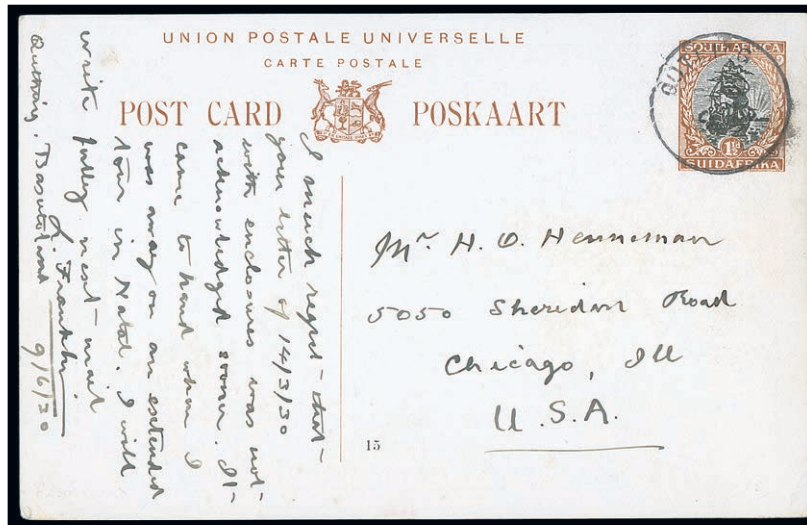 UNION POSTALE UNIVERSELLE
CARTE POSTALE
POST CARD POSKAART
SOUTH AFRICA
1½
SUIDAFRIKA
I much regret that
your letter of 14/3/30
with enclosures was not
acknowledged sooner. It
came to hand when I
was away on an extended
tour in Natal. I will
write fully next mail
Quthing, Basutoland 9/6/30
Mr. H. O. Henneman
5050 Sheridan Road
Chicago, Ill
U.S.A.
15